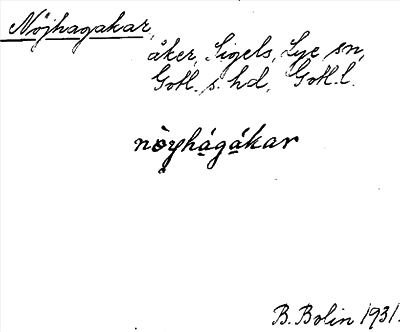 Nöjhagakar,
åker, Sigels, Lye sn,
Gotl. s. hd, Gotl. l.
nòyhágákar
B. Bolin 1931.